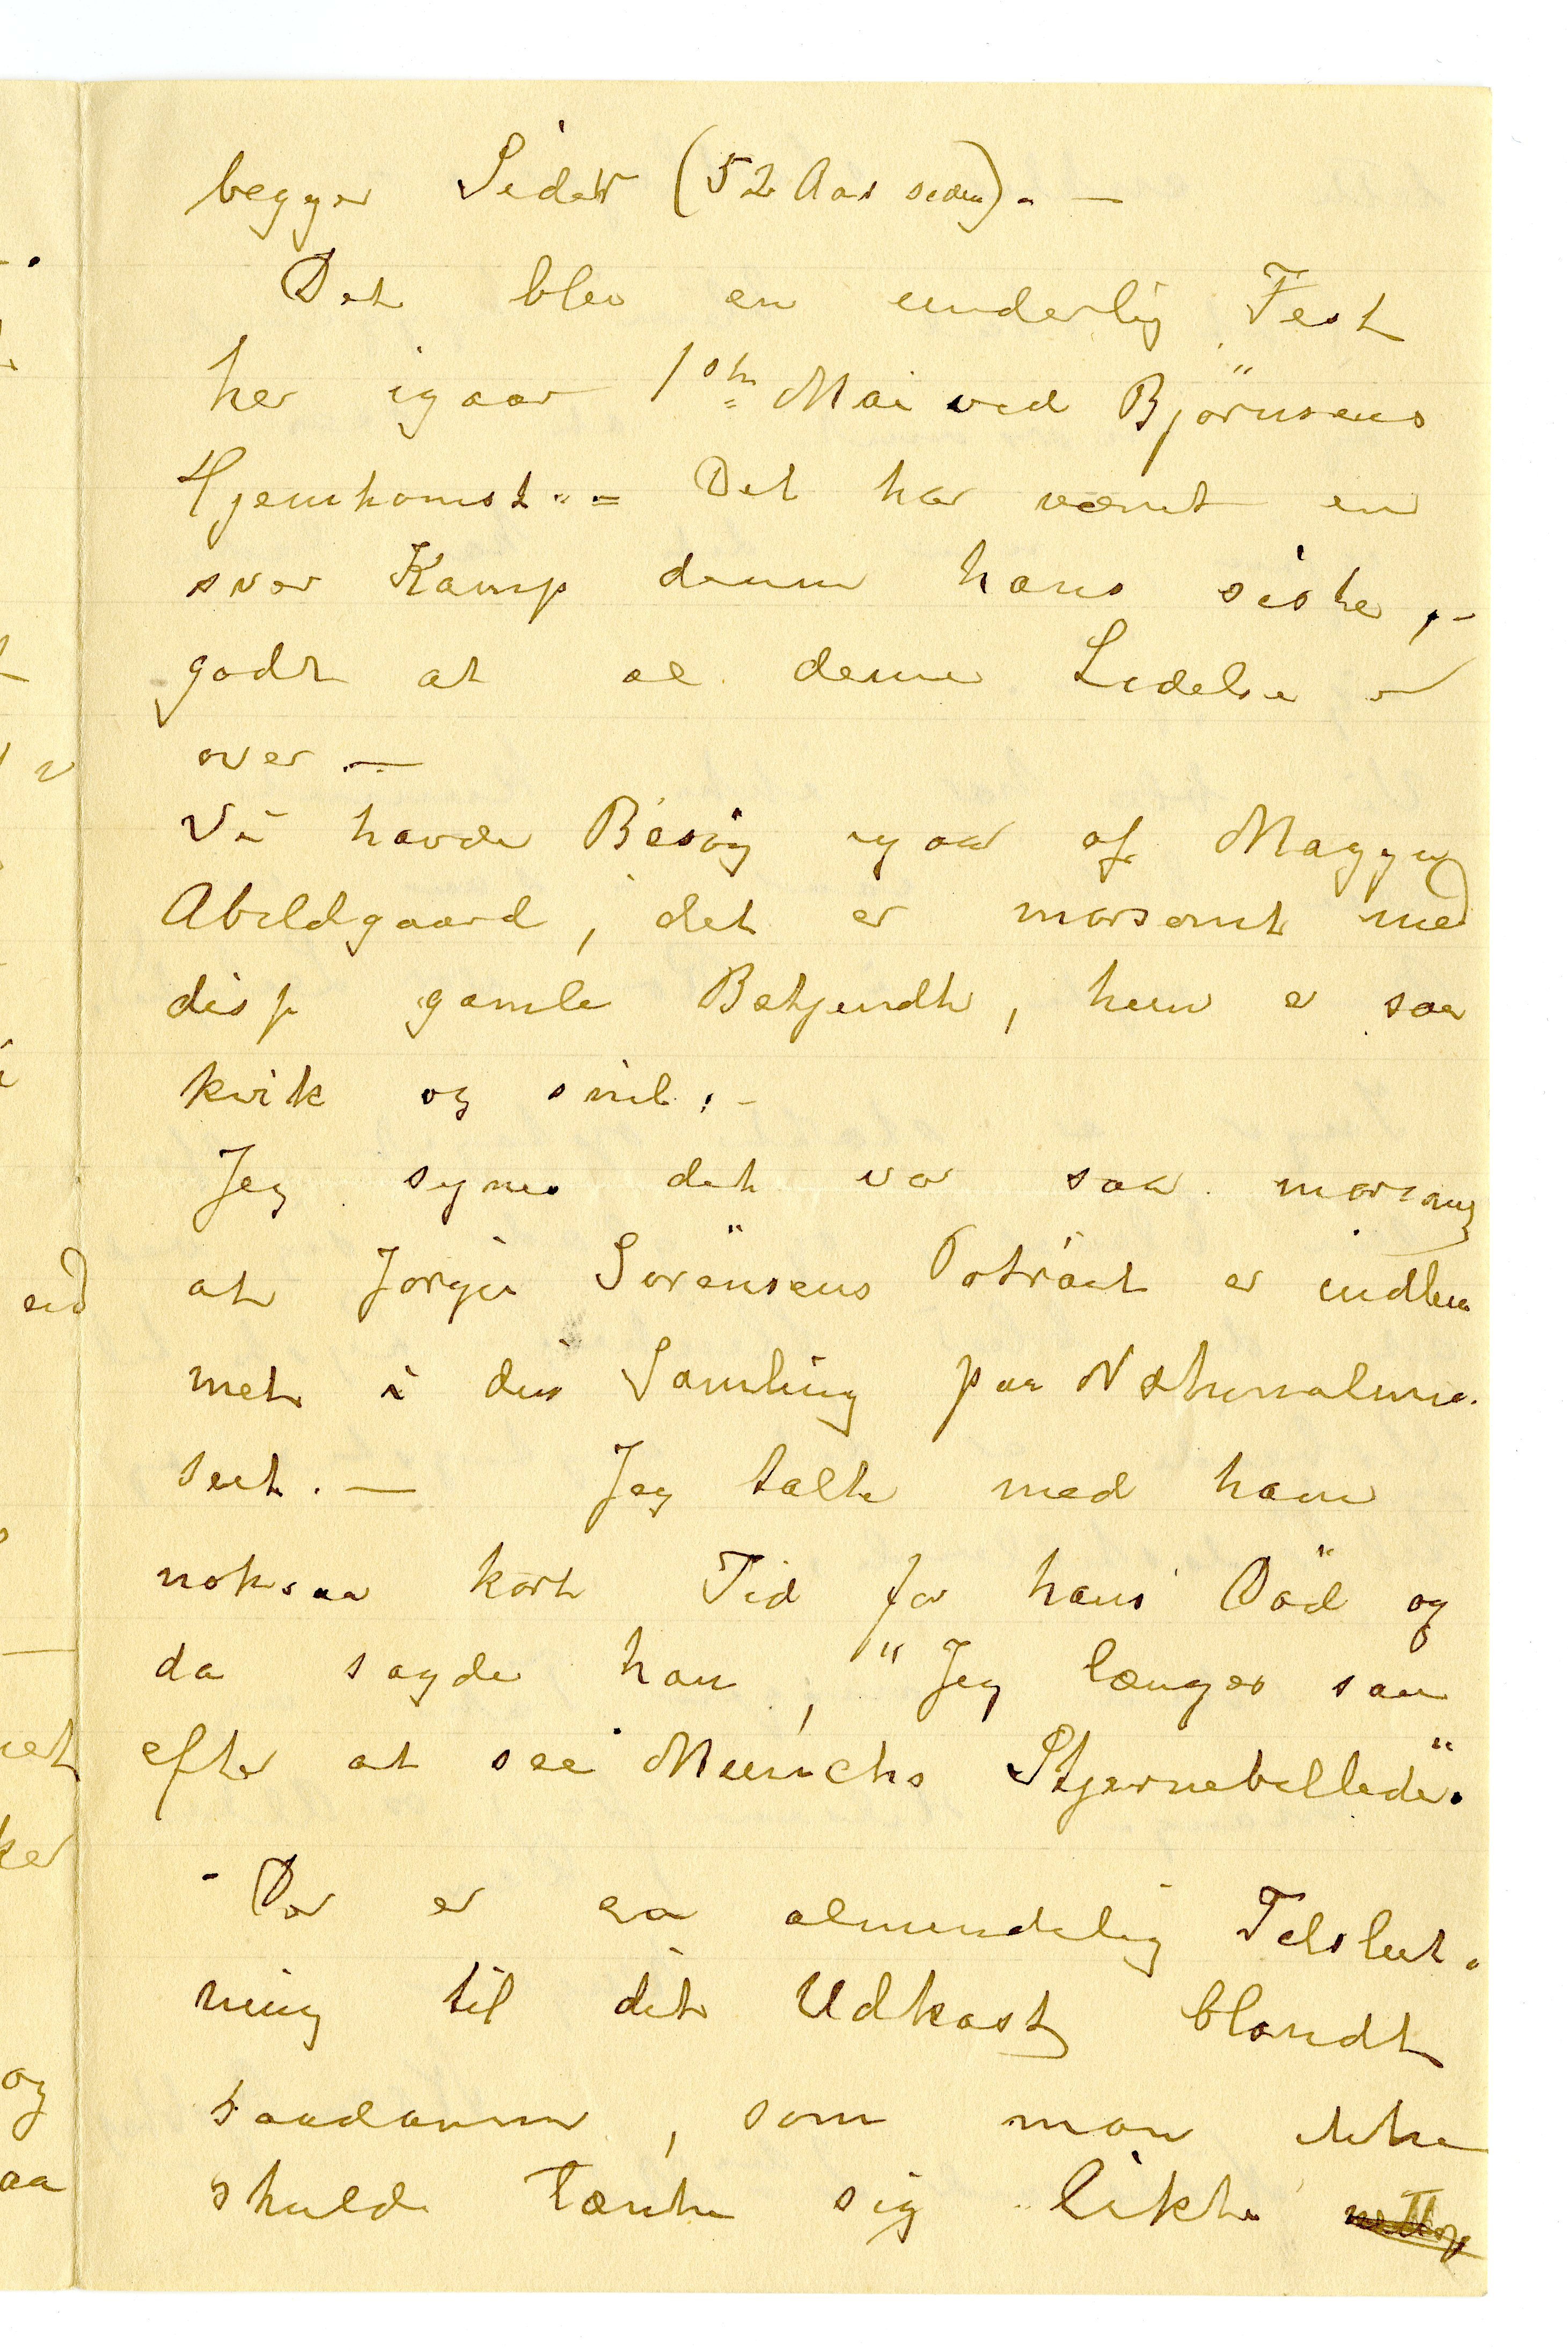 begger Sider (52 Aar siden). —
Det blev en underlig Fest
her igaar 1ste Mai ved Björnsens
Hjemkomst. - Det har været en
svær Kamp denne hans siste, -
godt at al denne Lidelse er
over. —
Vi havde Besög igaar af Magga
Abildgaard, det er morsomt med
disse gamle Bekjendte, hun er saa
kvik og snil. -
Jeg synes det var saa morsomt
at Jörgen Sörensens Porträt er indlem
met i din Samling paa Nationalmu-
seet. — Jeg talte med ham
noksaa kort Tid för hans Död og
da sagde han, "Jeg længes saa
efter at see Munchs Stjernebillede".
- Der er en almindelig Tilslut-
ning til dit Udkast blandt
saadanne, som man ikke
skulde tænke sig likte
eid
ket
ker
og
aa